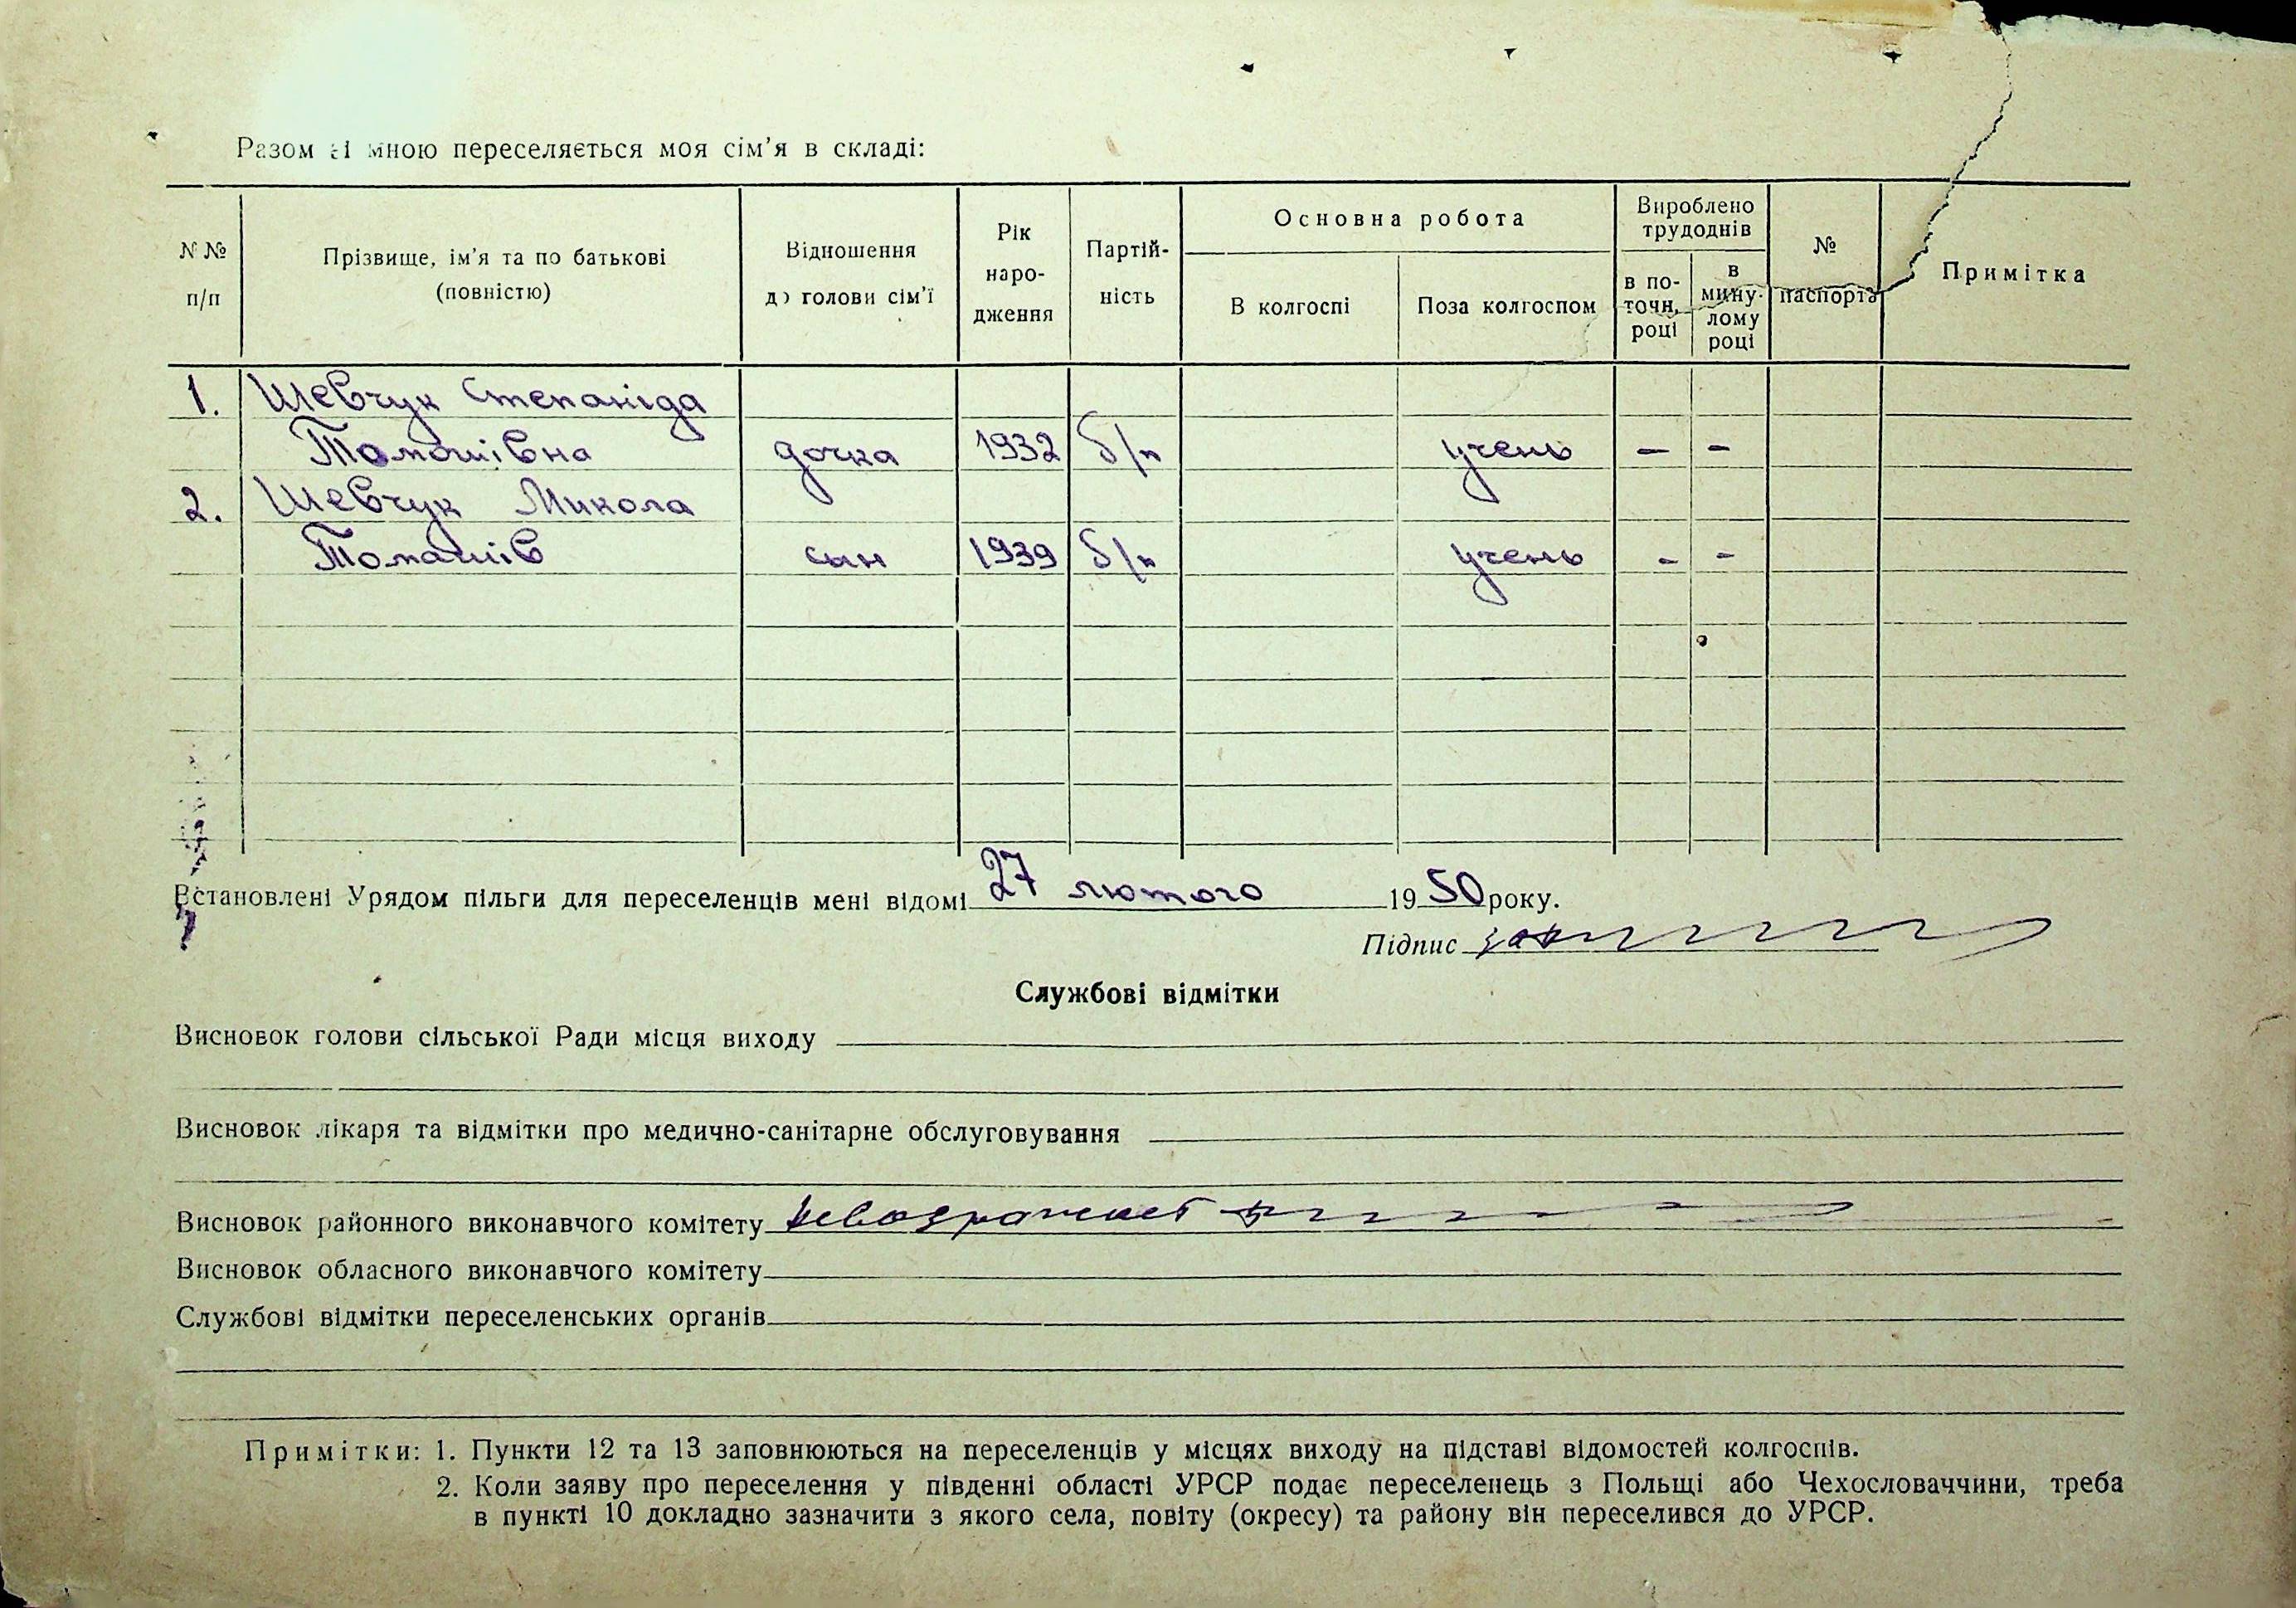 Разом зі мною переселяється моя сім'я в складі:
N №
п/п
Прізвище, ім'я та по батькові
(повністю)
Відношення
до голови сім'ї
Рік
наро-
дження
Партій-
ність
Основна робота
В колгоспі
Поза колгоспом
Вироблено
трудоднів
в по-
точн.
році
в
мину-
лому
році
№
паспорта
Примітка
1. Шевчук Степаніда
Томашівна дочка 1932 б/п учень - -
2. Шевчук Микола
Томашів сын 1939 б/п учень - -
Встановлені Урядом пільги для переселенців мені відомі 27 лютого 1950 року.
Підпис
Службові відмітки
Висновок голови сільської Ради місця виходу
Висновок лікаря та відмітки про медично-санітарне обслуговування
Висновок районного виконавчого комітету невозражает
Висновок обласного виконавчого комітету
Службові відмітки переселенських органів
Примітки: 1. Пункти 12 та 13 заповнюються на переселенців у місцях виходу на підставі відомостей колгоспів.
2. Коли заяву про переселення у південні області УРСР подає переселенець з Польщі або Чехословаччини, треба
в пункті 10 докладно зазначити з якого села, повіту (окресу) та району він переселився до УРСР.